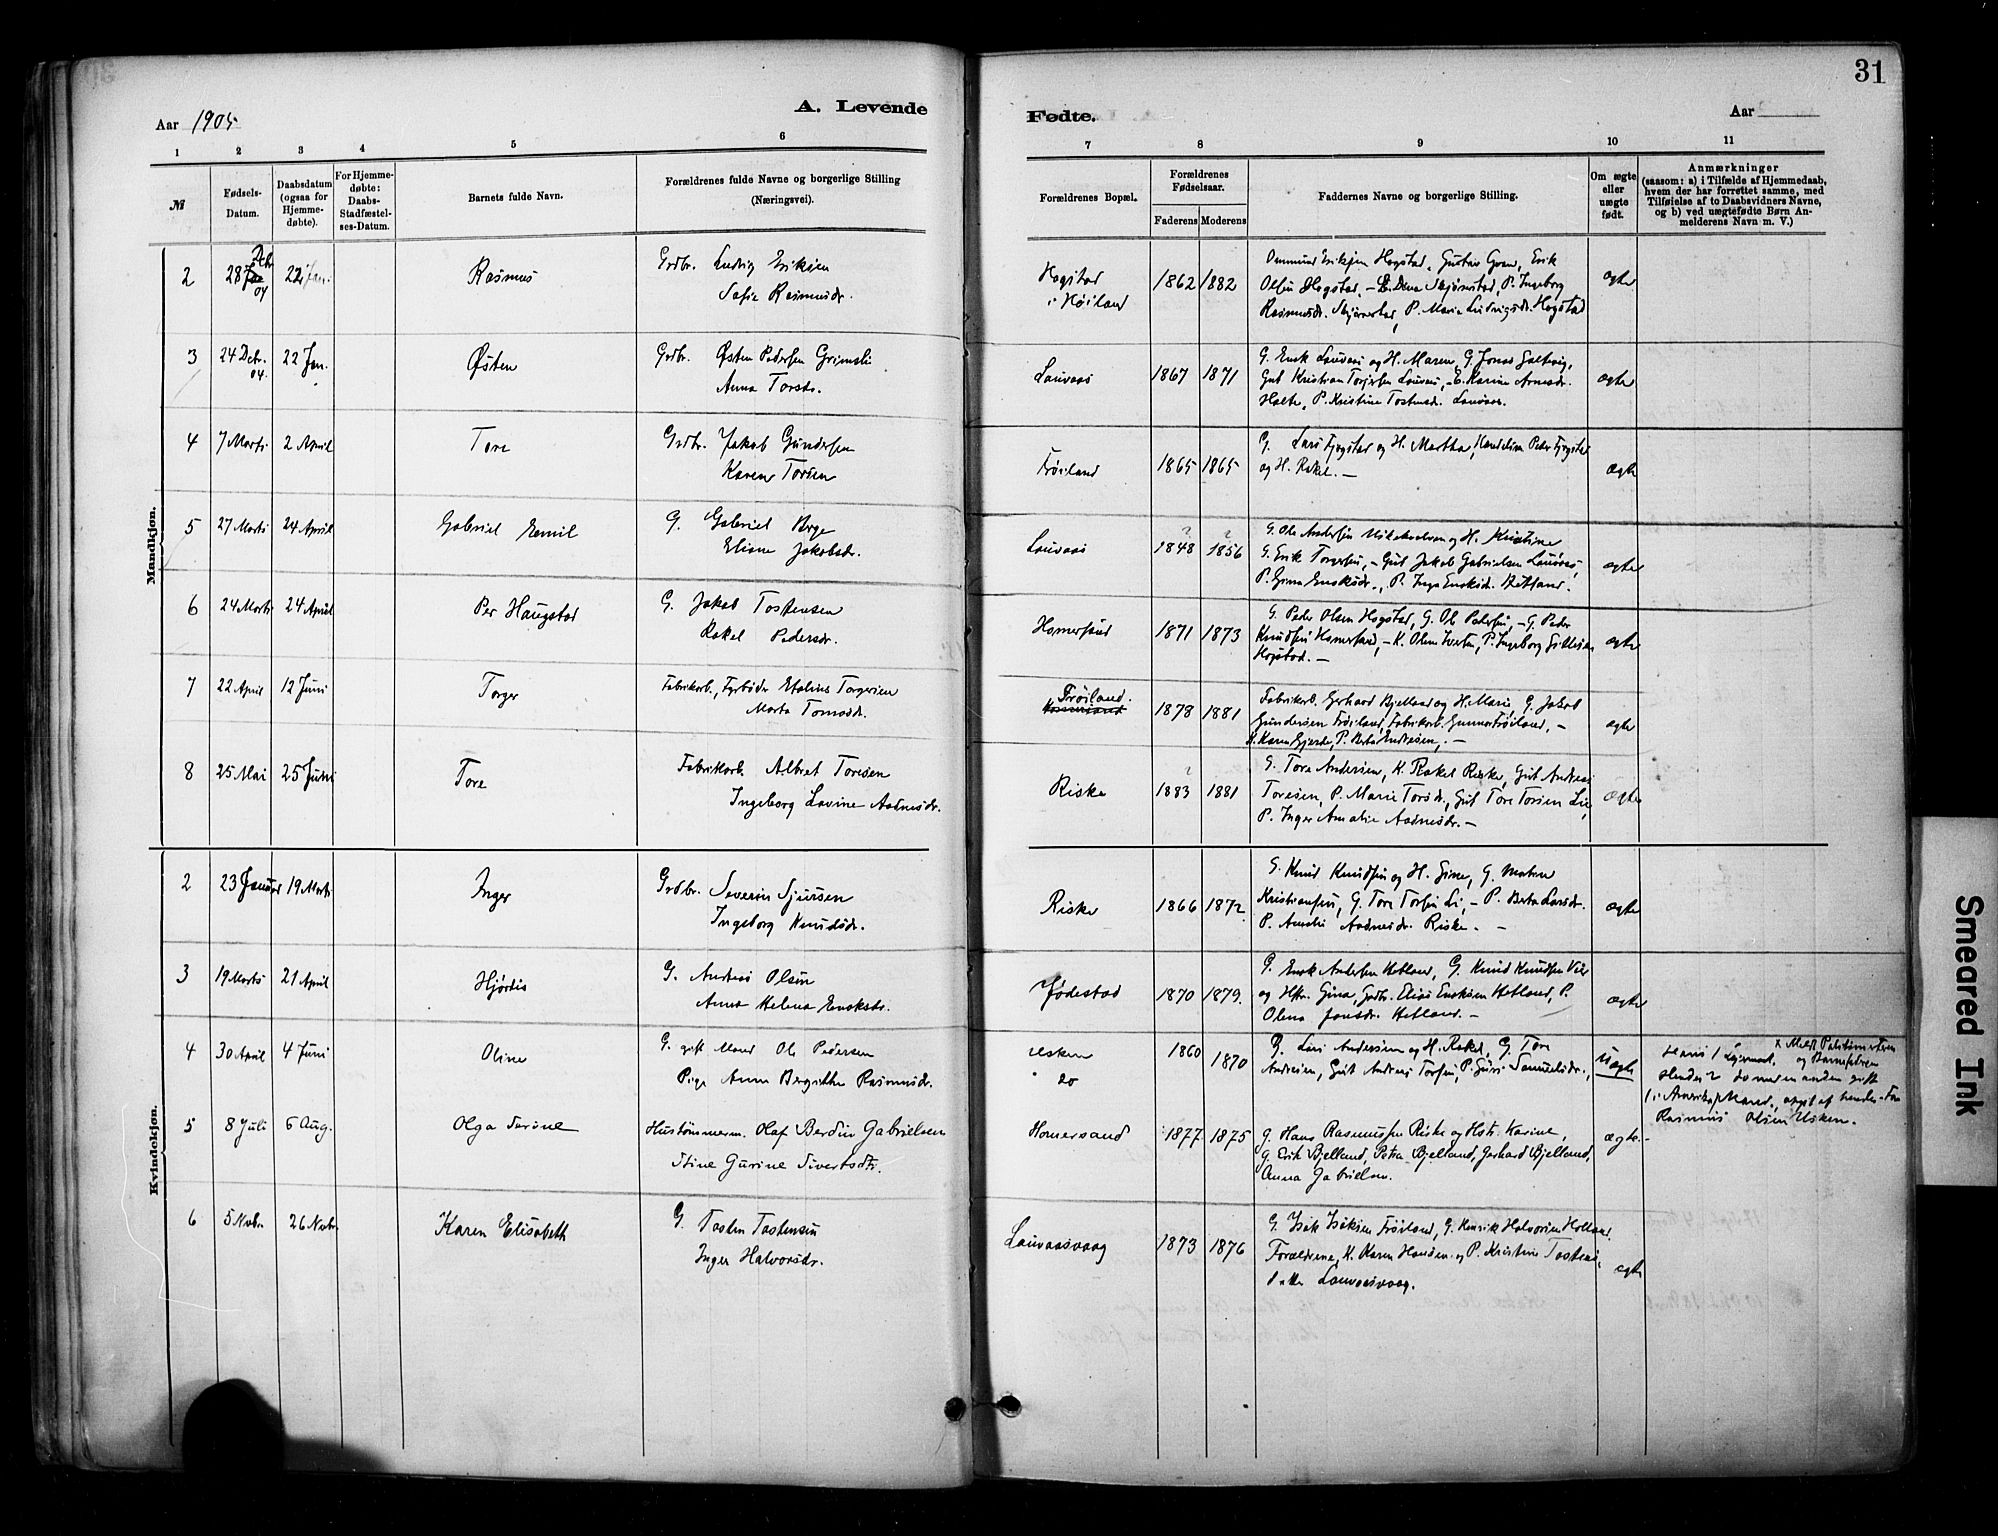 31
Aar 1905
A. Levende
Fødte.
Aar
1 2 3 4 5 6 7 8 9 10 11
№
Fødsels-
Datum.
Daabsdatum
(ogsaa for
Hjemme-
døbte).
For Hjemme-
døbte:
Daabs-
Stadfæstel-
ses-Datum.
Barnets fulde Navn.
Forældrenes fulde Navne og borgerlige Stilling
(Næringsvei).
Forældrenes Bopæl.
Forældrenes
Fødselsaar.
Faderens Moderens
Faddernes Navne og borgerlige Stilling.
Om ægte
eller
uægte
født.
Anmærkninger
(saasom: a) i Tilfælde af Hjemmedaab,
hvem der har forrettet samme, med
Tilføielse af to Daabsvidners Navne,
og b) ved uægtefødte Børn An-
melderens Navn m. V.)
Mandkjøn.
2 28 Dcbr 04 22 Jan. Rasmus Grdbr. Ludvig Eriksen
Sofie Rasmusdr.
Hogstad
i Høiland
1862 1882
Ommund Eriksen Hogstad, Gustav Gran, Erik
Olsen Hogstad, P. Ingeborg
Rasmusdr. P. Marie Ludvigsdr. Hogstad
ægte
3 24 Dcbr. 04. 22 Jan. Østen Grdbr. Østen Pedersen Grimsli
Anna Torsdr.
Lauvaas 1867 1871
G. Enok Lauvaas og H. Maren, G. Jonas
Gut Kristian Torgersen Lauvaas, E. Karine Arnesdr.
Holte, P. Kristine Tostensdr. Lauvaas.
ægte
4 7 Marts 2 April Tore Grdbr. Jakob Gundersen
Karen Torsen
Frøiland 1865 1865
G. Lars og H. Martha, Peder
og H. Rakel. –
ægte
5 27 Marts 24 April Gabriel Emil G. Gabriel Berge
Eliane Jakobsdr.
Lauvaas 1848 ? 1856 ?
G. Ole Andersen og H. Kristine
G. Erik Torgersen, – Gut Jakob Gabrielsen Lauvaas,
P. Gina Enoksdr., P. Inga Enoksdr. Hetland.
ægte
6 24 Marts 24 April Per Haugstad G. Jakob Tostensen
Rakel Pedersdr.
Homersand 1871 1873
G. Peder Olsen Hogstad, G. Ol Pedersen, – G. Peder
Knudsen Homersand, – K. Olene P. Ingeborg
Hogstad. –
ægte
7 22 April 12 Juni Torger Fabrikarb., Fyrbøder Torgersen
Marta Tomasdr.
Frøiland. 1878 1881
Fabrikarb. Gerhard Bjelland og H. Marie, G. Jakob
Gundersen Frøiland, Fabrikarb. Gunnar Frøiland, –
K. Karen Gjerde, P. Berta Endresen, –
ægte
8 25 Mai 25 Juni Tore Fabrikarb. Albret Toresen
Ingeborg Lovine Aadnesdr.
Riska 1883 ? 1881
G. Tore Andersen, K. Rakel Riska, Gut Andreas
Toresen, P. Marie Torsdr., Gut Tore Torsen Li,
P. Inger Amalie Aadnesdr. –
ægte
Kvindekjøn.
2 23 Januar 19 Marts Inger Grdbr. Severin Sjursen
Ingeborg Knudsdr.
Riska 1866 1872.
G. Knud Knudsen og H. Gine, G.
Kristiansen, G. Tore Torsen Li, – P. Berta Larsdr.
P. Amalie Aadnesdr. Riska. –
ægte
3 19 Marts 21 April Hjørdis G. Andreas Olsen
Anna Helena Enoksdr.
Jødestad 1870 1879.
G. Enok Andersen Hetland, G. Knud Knudsen
og Hstr. Gina, Grdbr. Elias Enoksen Hetland, P.
Olena Jonsdr. Hetland. –
ægte
4 30 April 4 Juni Oline G. gift Mand Ole Pedersen
Pige Anne Bergitthe Rasmusdr.
Usken
do
1860 1870
G. Lars Andersen og H. Rakel, G. Tore
Andersen, Gut Andreas Torsen, P. Guri Samuelsdr.,
uægte
Hans 1 Leiermaal.
og Barnefaderen
Hendes 2 do med en anden gift
(i Amerika) Mand, opgit af hendes Far
Rasmus Olsen Usken.
5 8 Juli 6 Aug. Olga Serine Hustømmerm. Olaf Berdin Gabrielsen
Stine Gurine Sivertsdtr.
Homersand 1877 1875
G. Hans Rasmussen Riske og Hstr. Karine,
G. Erik Bjelland, Petra Bjelland, Gerhard Bjelland,
Anna Gabrielsen.
ægte.
6 5 Novbr 26 Novbr Karen Elisabeth G. Tosten Tostensen
Inger Halvorsdr.
Lauvaasvaag 1873 1876
G. Isak Isaksen Frøiland, G. Henrik Halvorsen Hetland,
Forældrene, K. Karen Hansen og P. Kristine
Lauvaasvaag.
ægte
Smeared Ink